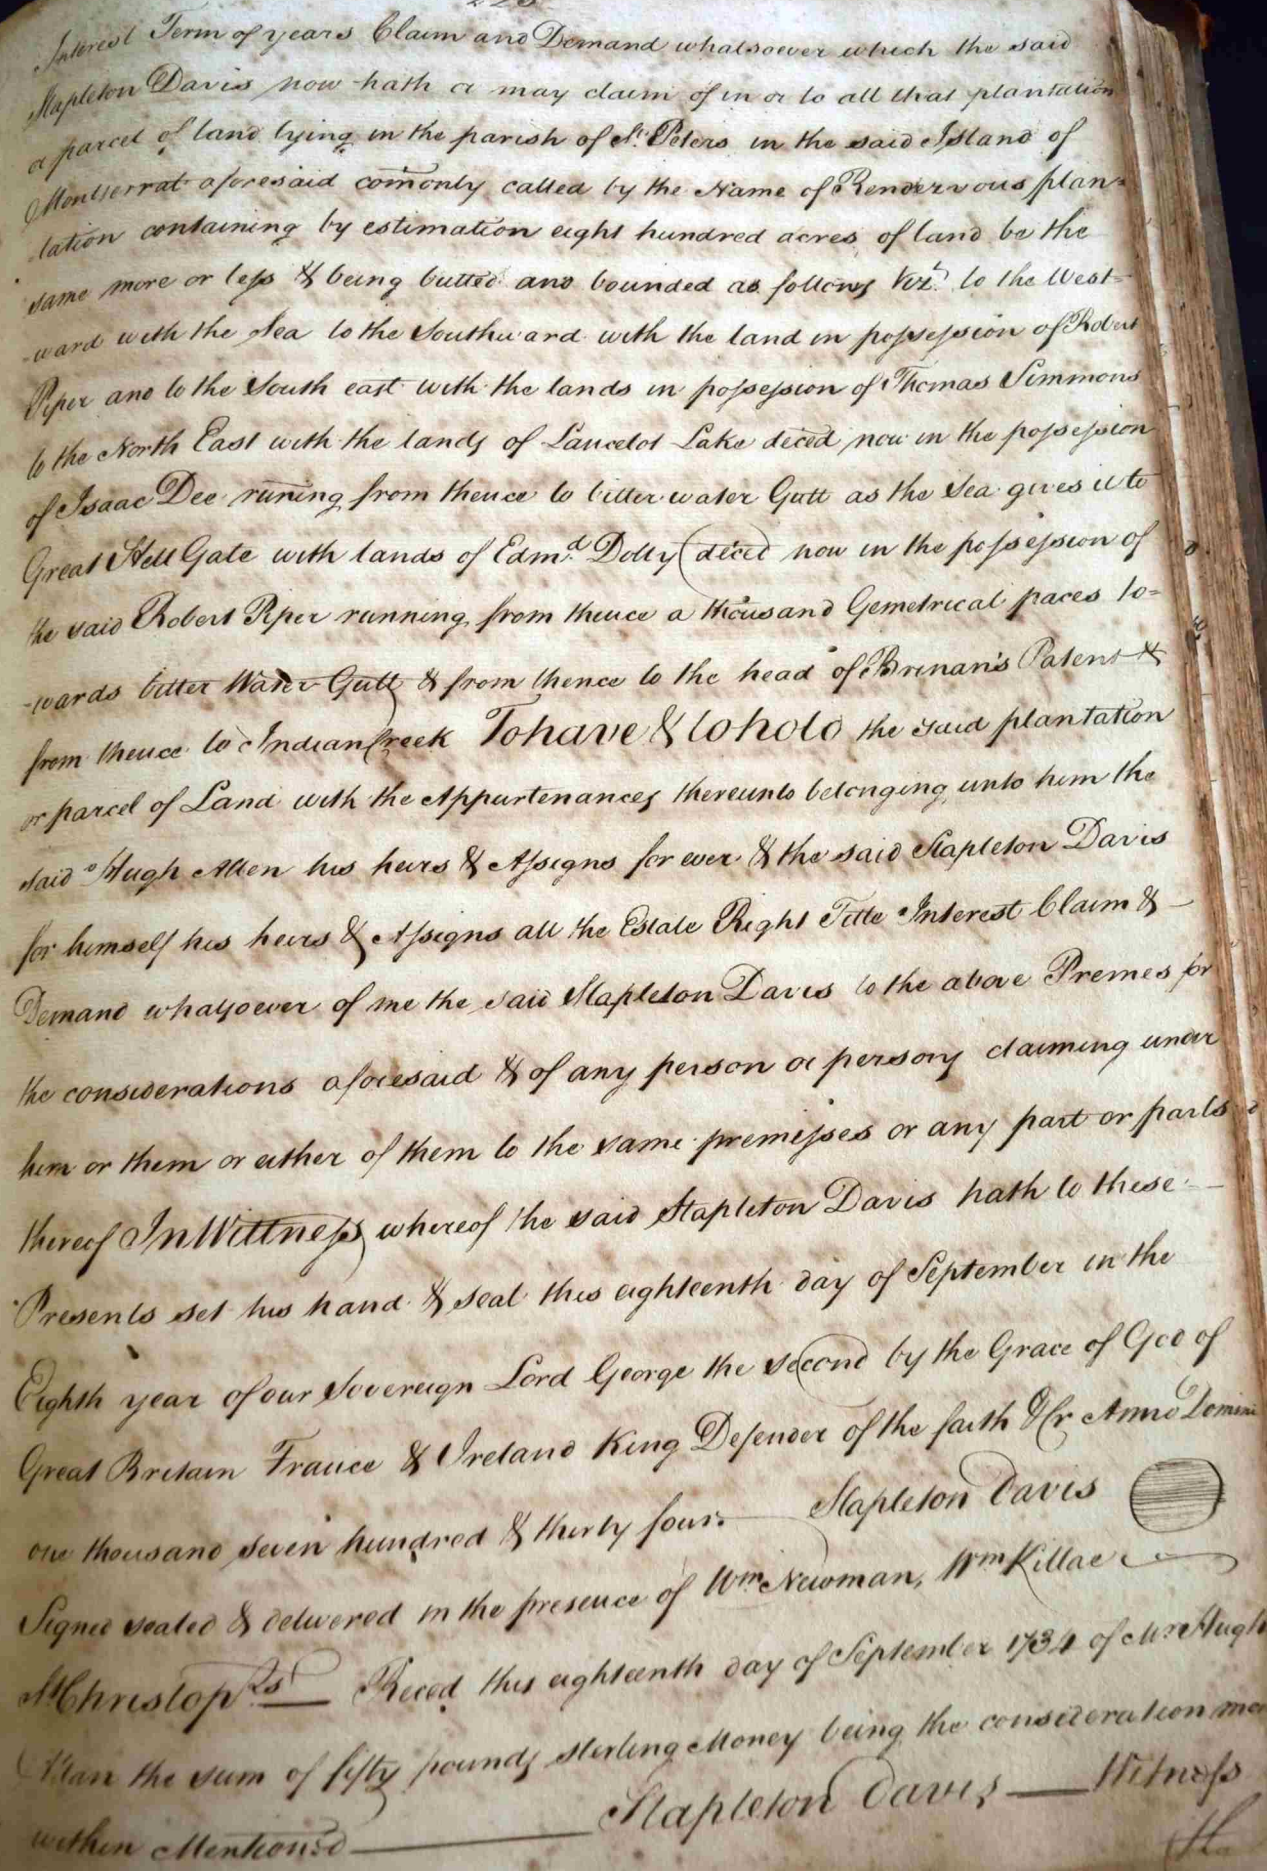 Interest Term of years Claim and Demand whatsoever which the said
Stapleton Davis now hath or may claim of in or to all that plantation
or parcel of land lying in the parish of St. Peters in the said Island of
Montserrat aforesaid comonly called by the Name of Rendezvous plan=
tation containing by estimation eight hundred acres of land be the
same more or less & being butted and bounded as follows Vizt. to the West-
-ward with the Sea to the Southward with the land in possession of Robert
Piper and to the South east with the lands in possession of Thomas Simmons
to the North East with the lands of Lancelot Lake deced now in the possession
of Isaac Dee runing from thence to bitter water Gutt as the Sea gives it to
Great Hell Gate with lands of Edmd. Dolly deced now in the possession of
the said Robert Piper running from thence a thousand Gemetrical paces to=
-wards bitter Water Gutt & from thence to the head of Brinan's Patent &
from thence to Indian Creek To have & to hold the said plantation
or parcel of Land with the Appurtenances thereunto belonging unto him the
said Hugh Allen his heirs & Assigns for ever & the said Stapleton Davis
for himself his heirs & Assigns all the Estate Right Title Interest Claim &
Demand whatsoever of me the said Stapleton Davis to the above Premes for
the considerations aforesaid & of any person or persons claiming under
him or them or either of them to the same premisses or any part or parts
thereof In Wittness whereof the said Stapleton Davis hath to these
Presents set his hand & seal this eighteenth day of September in the
Eighth year of our Sovereign Lord George the second by the Grace of God of
Great Britain France & Ireland King Defender of the faith &c Anno Domini
one thousand seven hundred & thirty four. Stapleton Davis
Signed sealed & delivered in the presence of Wm Newman, Wm Killae
St Christoprs Reced this eighteenth day of September 1734 of Mr Hugh
Allan the sum of fifty pounds sterling Money being the consideration
within Mention'd Stapleton Davis Witness